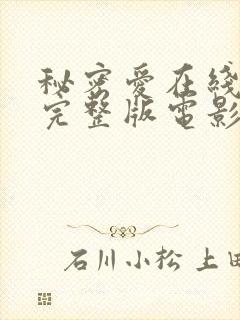 秘密愛在綫
完整版電影
石川小松 上田